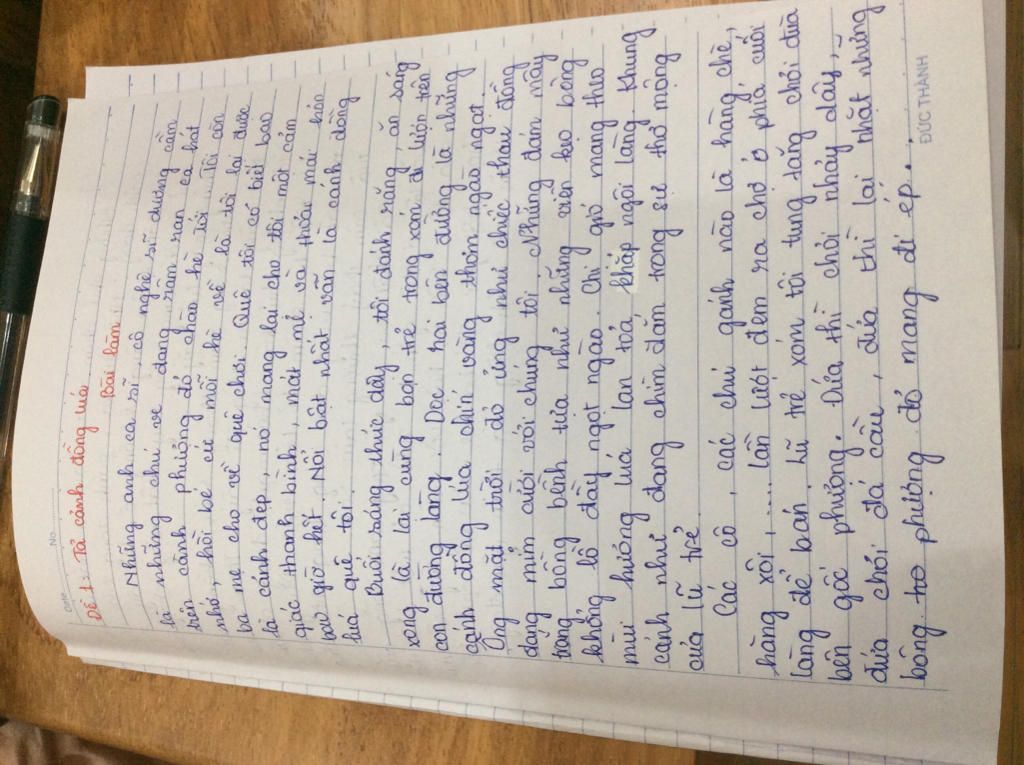 Date
No.
Đề 1: Tả cảnh đồng lúa
Bài làm:
Những anh ca sĩ, cô nghệ sĩ dương cầm
là những chú ve đang râm ran ca hát
trên cành phượng đỏ chào hè tới. Tôi còn
nhớ, hồi bé cứ mỗi hè về là tôi lại được
ba mẹ cho về quê chơi. Quê tôi có biết bao
là cảnh đẹp, nó mang lại cho tôi một cảm
giác thanh bình, mát mẻ và thoải mái hơn
bao giờ hết. Nổi bật nhất vẫn là cánh đồng
lúa quê tôi.
Buổi sáng thức dậy, tôi đánh răng, ăn sáng
xong là lại cùng bọn trẻ trong xóm đi lượn trên
con đường làng. Dọc hai bên đường là những
cánh đồng lúa chín vàng thơm ngào ngạt.
Ông mặt trời đỏ ửng như chiếc thau đồng
đang mỉm cười với chúng tôi. Những đám mây
trắng bồng bềnh tựa như những viên kẹo bông
khổng lồ đầy ngọt ngào. Chị gió mang theo
mùi hương lúa lan toả khắp ngôi làng. Khung
cảnh như đang chìm đắm trong sự thơ mộng
của lũ trẻ.
Các cô, các chú gánh nào là hàng chè,
hàng xôi,.... lần lượt đem ra chợ ở phía cuối
làng để bán. Lũ trẻ xóm tôi tung tăng chơi đùa
bên gốc phượng. Đứa thì chơi nhảy dây,
đứa chơi đá cầu, đứa thì lại nhặt những
bông hoa phượng đỏ mang đi ép...
ĐỨC THÀNH